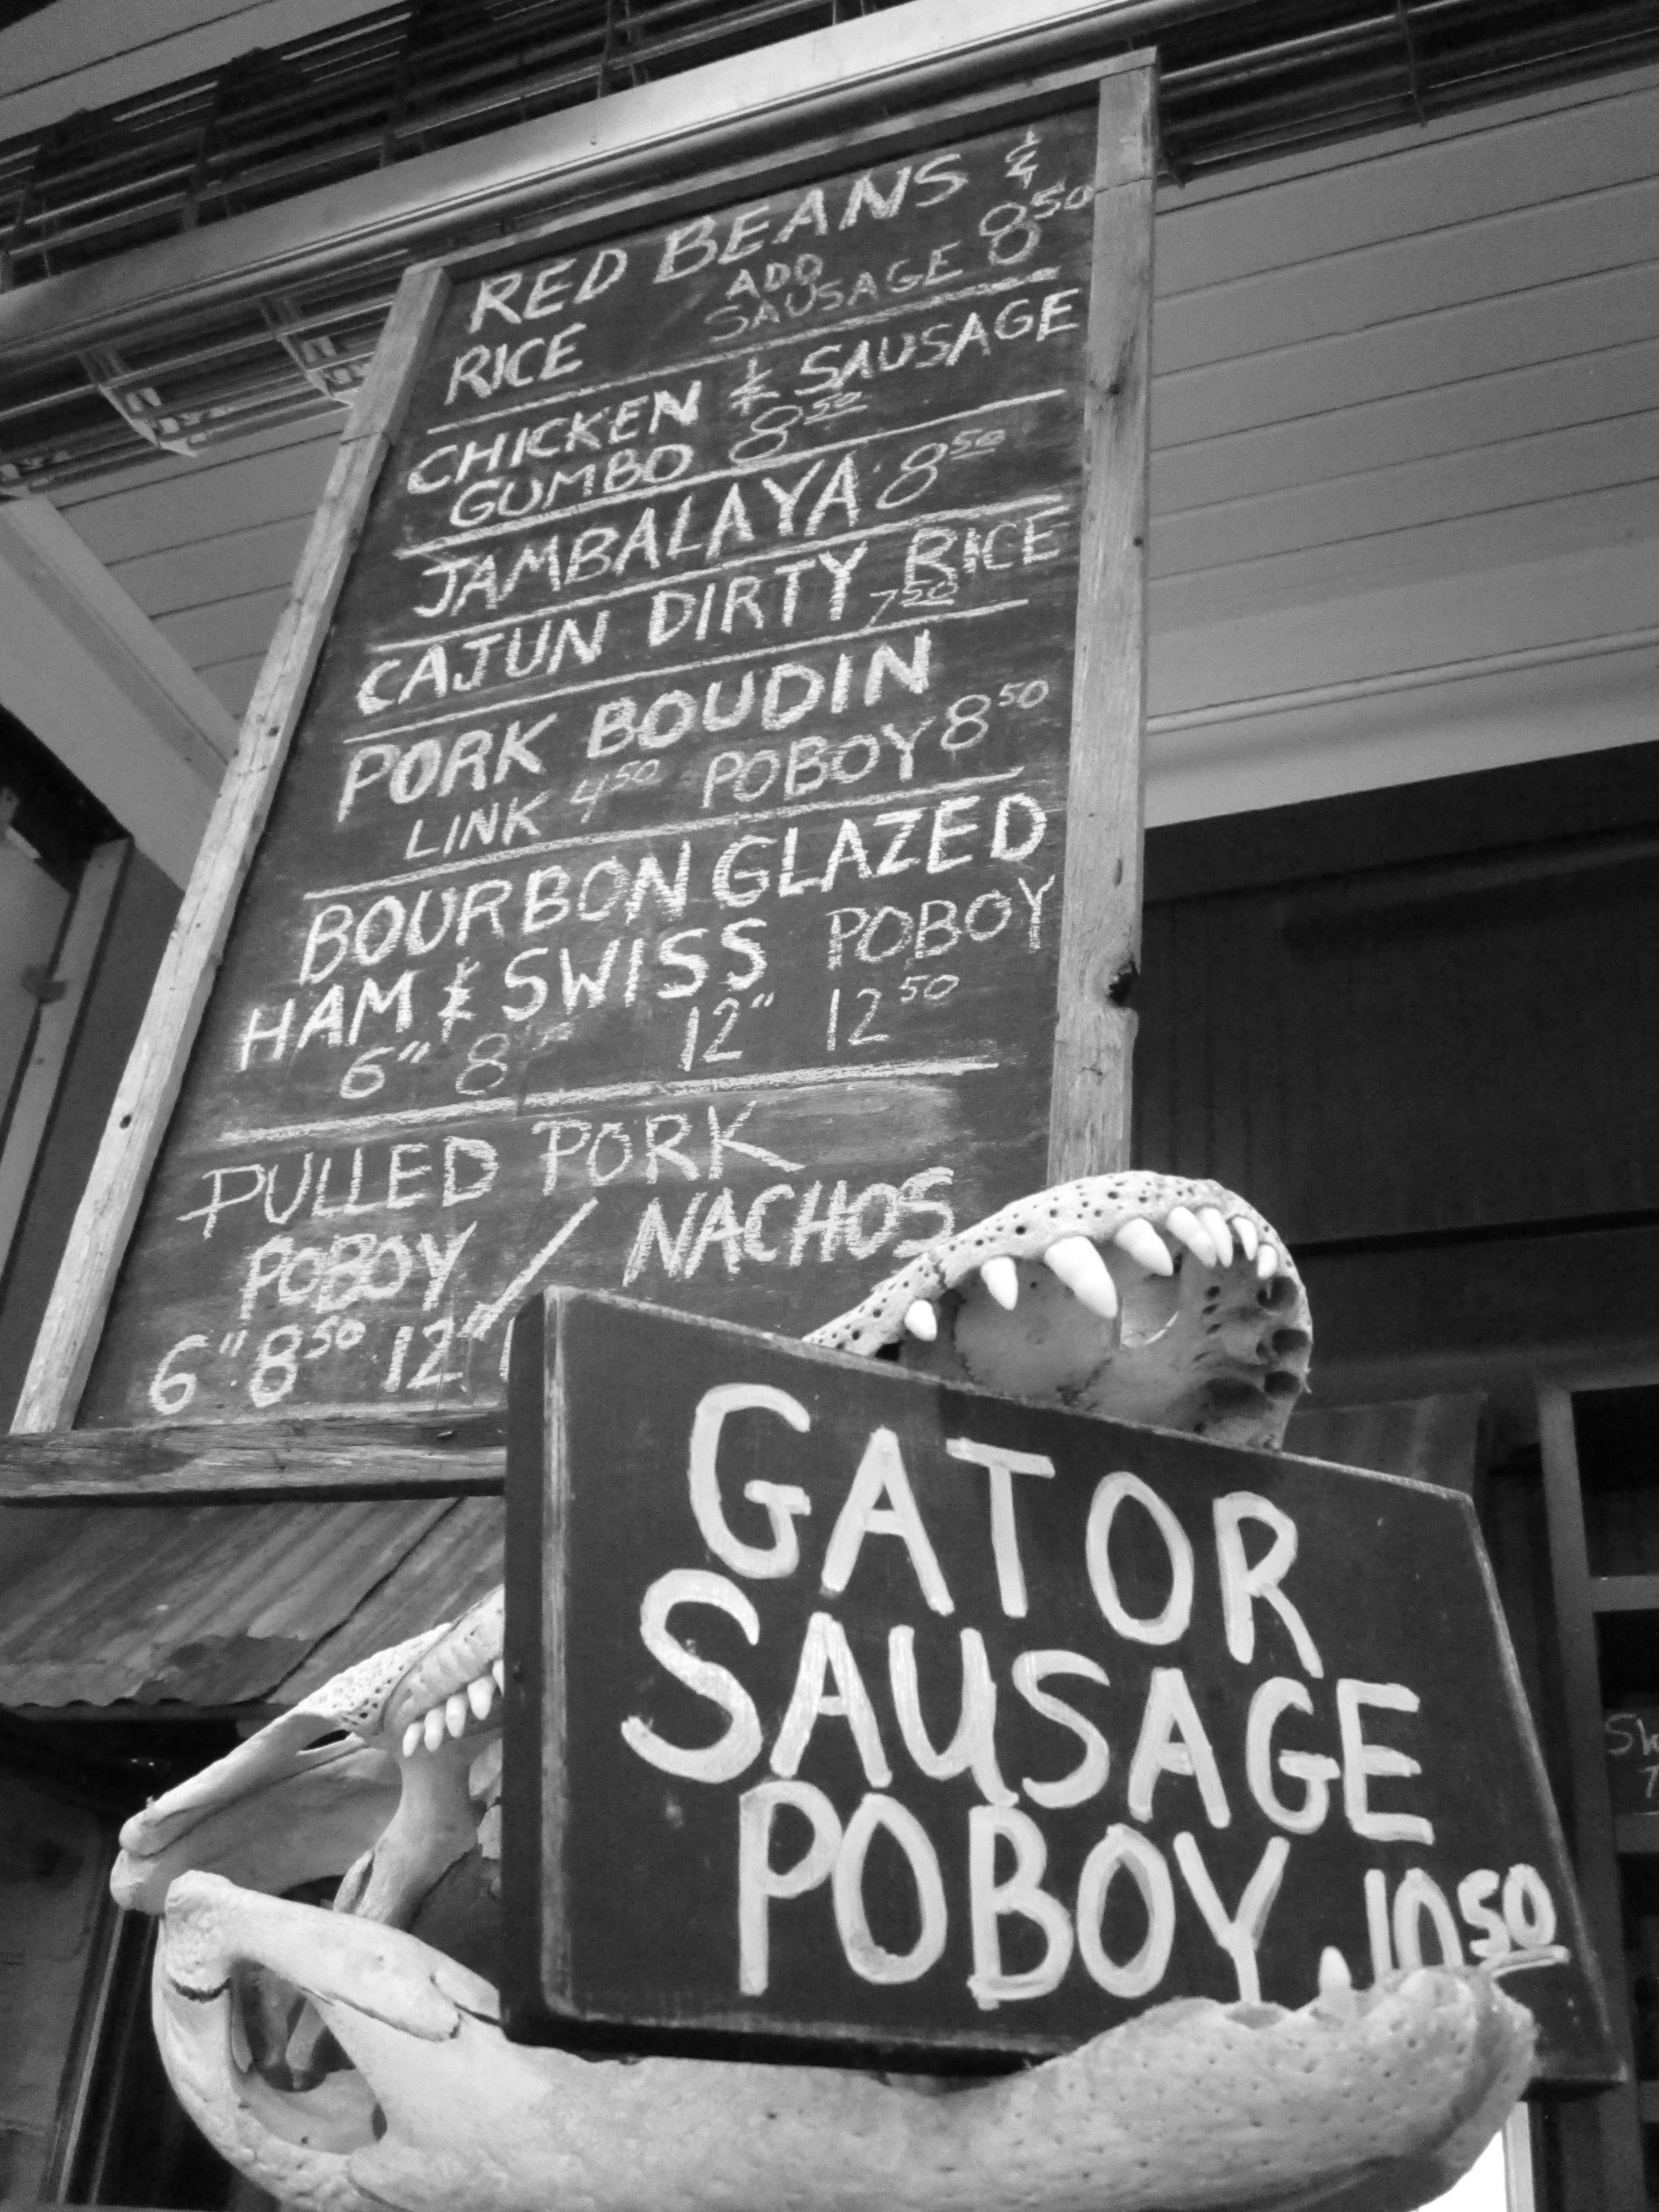 RED BEANS &
RICE ADD SAUSAGE 8 50
CHICKEN & SAUSAGE
GUMBO 8 50
JAMBALAYA 8 50
CAJUN DIRTY RICE
7 50
PORK BOUDIN
LINK 4 50 POBOY 8 50
BOURBON GLAZED
HAM & SWISS POBOY
6" 8 12" 12 50
PULLED PORK
POBOY / NACHOS
6" 8 50 12"
GATOR
SAUSAGE
POBOY 10 50